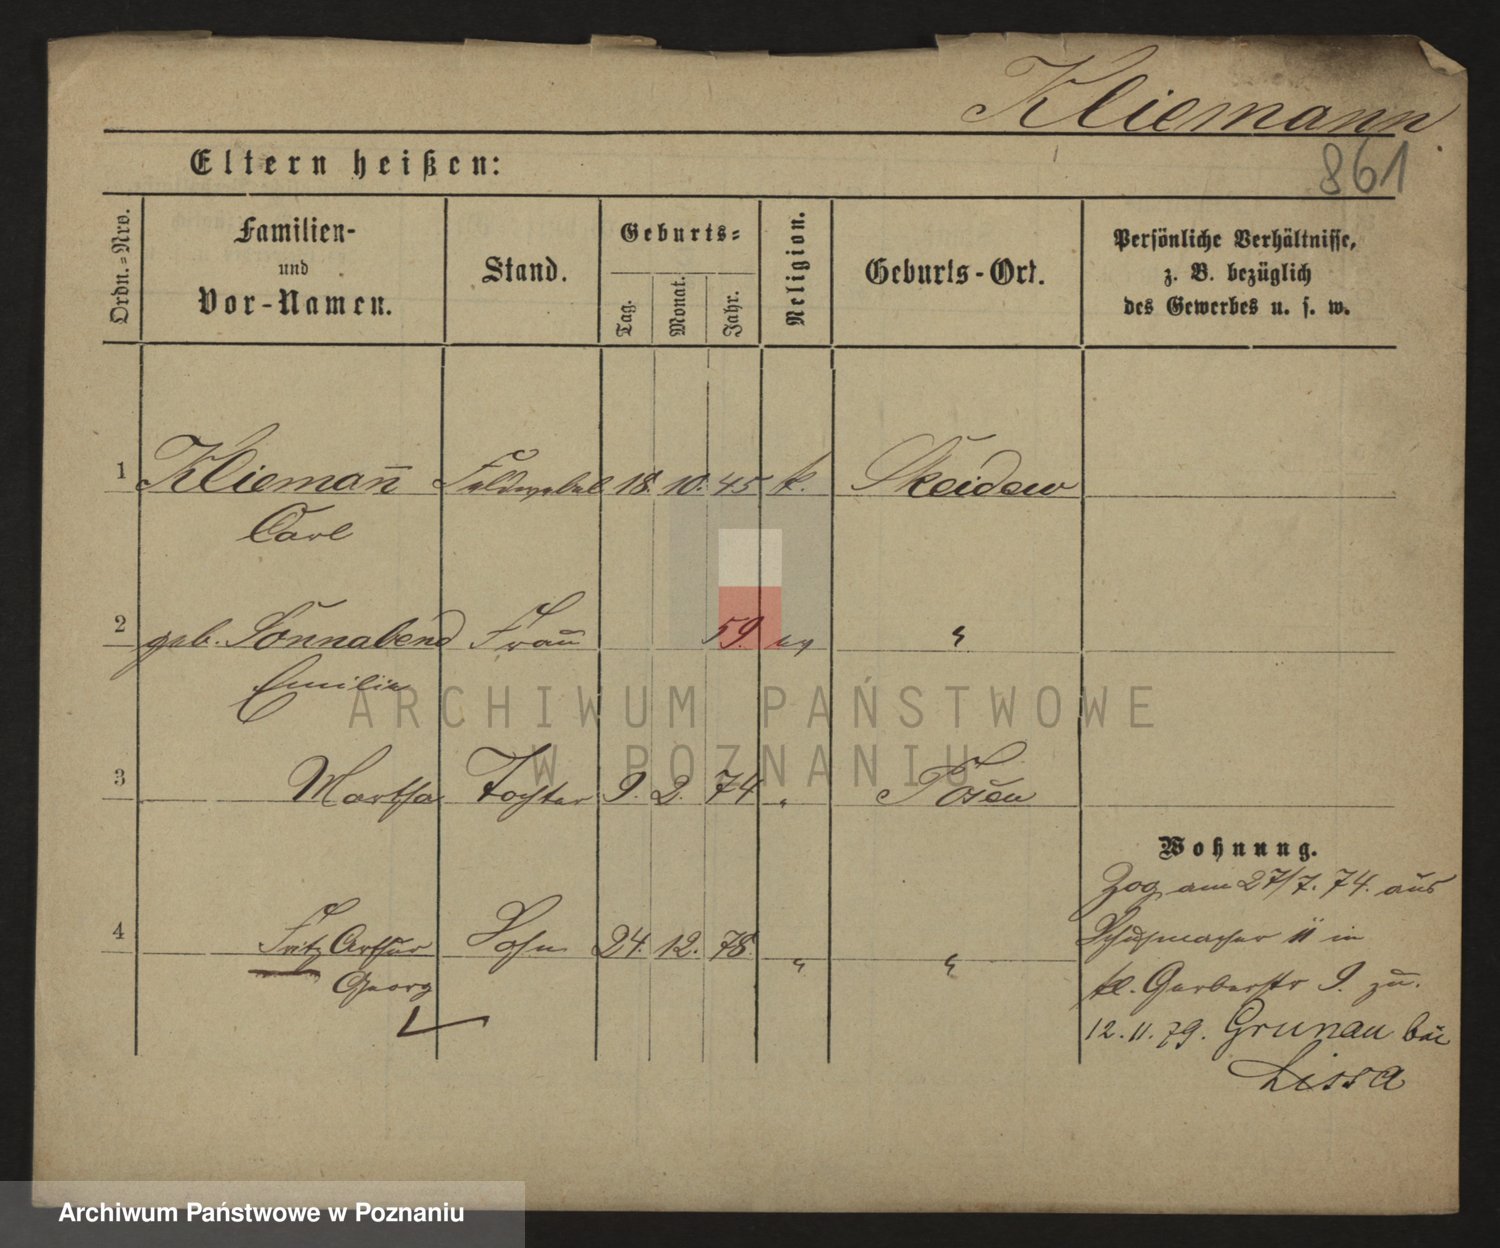 Kliemann
861
Eltern heißen:
Ordn.=Nro.
Familien-
und
Vor-Namen.
Stand.
Geburts=
Tag.
Monat.
Jahr.
Religion.
Geburts-Ort.
Persönliche Verhältnisse,
z. B. bezüglich
des Gewerbes u. s. w.
1 Kliemann̄ Feldwebel 18. 10. 45 k.
Carl
2 geb. Sonnabend Frau 59. ev "
Emilie
3 Martha Tochter 9. 2. 74 " Posen
Wohnung.
Zog am 27/7. 74. aus
4 Fritz Arthur Sohn 24. 12. 78. " "
Schuhmacher 11 in
Georg
kl. Gerberstr 9. zu.
12. 11. 79. Grunau bei
Lissa
ARCHIWUM PAŃSTWOWE
W POZNANIU
Archiwum Państwowe w Poznaniu